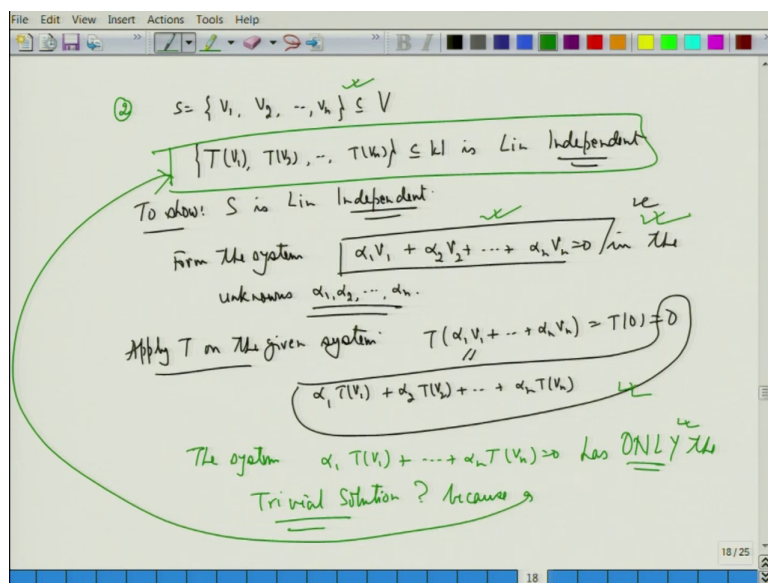 File Edit View Insert Actions Tools Help
② S = { V₁, V₂, --, Vₙ } ⊆ V
{ T(V₁), T(V₂), --, T(Vₙ) } ⊆ W is Lin Independent
To show: S is Lin Independent.
Form the system α₁V₁ + α₂V₂ + --- + αₙVₙ = 0 in the
unknowns α₁, α₂, ---, αₙ.
Apply T on the given system: T(α₁V₁ + --- + αₙVₙ) = T(0) = 0
α₁ T(V₁) + α₂ T(V₂) + --- + αₙ T(Vₙ)
The system α₁ T(V₁) + ---- + αₙ T(Vₙ) = 0 has ONLY the
Trivial Solution? because
18 / 25
18